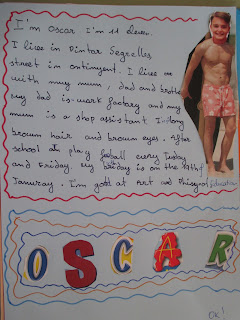 I'm Oscar I'm 11 eleven.
I live in Pintor Segrelles
street in ontinyent. I live
with my mum, dad and brothe
my dad is work factory and my
mum is a shop assistant I
brown hair and brown eyes. After
school play football every Tuesday
and Friday. my birthday is on the
January. I'm good at Art and Phisycal Education
OSCAR
OK!